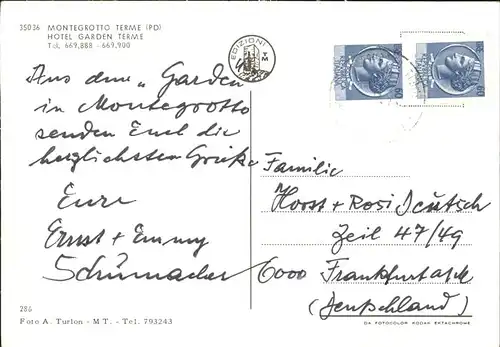 35036 MONTEGROTTO TERME (PD)
HOTEL GARDEN TERME
Tel. 669.888 - 669.900
EDIZIONI TM
Aus dem „Garden
in Montegrotto
senden Euch die
herzlichsten Grüße
Eure
Ernst + Emmy
Schumacher
Familie
Horst + Rosi Deutsch
Zeil 47/49
6000 Frankfurt
(Deutschland)
286
Foto A. Turlon - M T. - Tel. 793243
DA FOTOCOLOR KODAK EKTACHROME